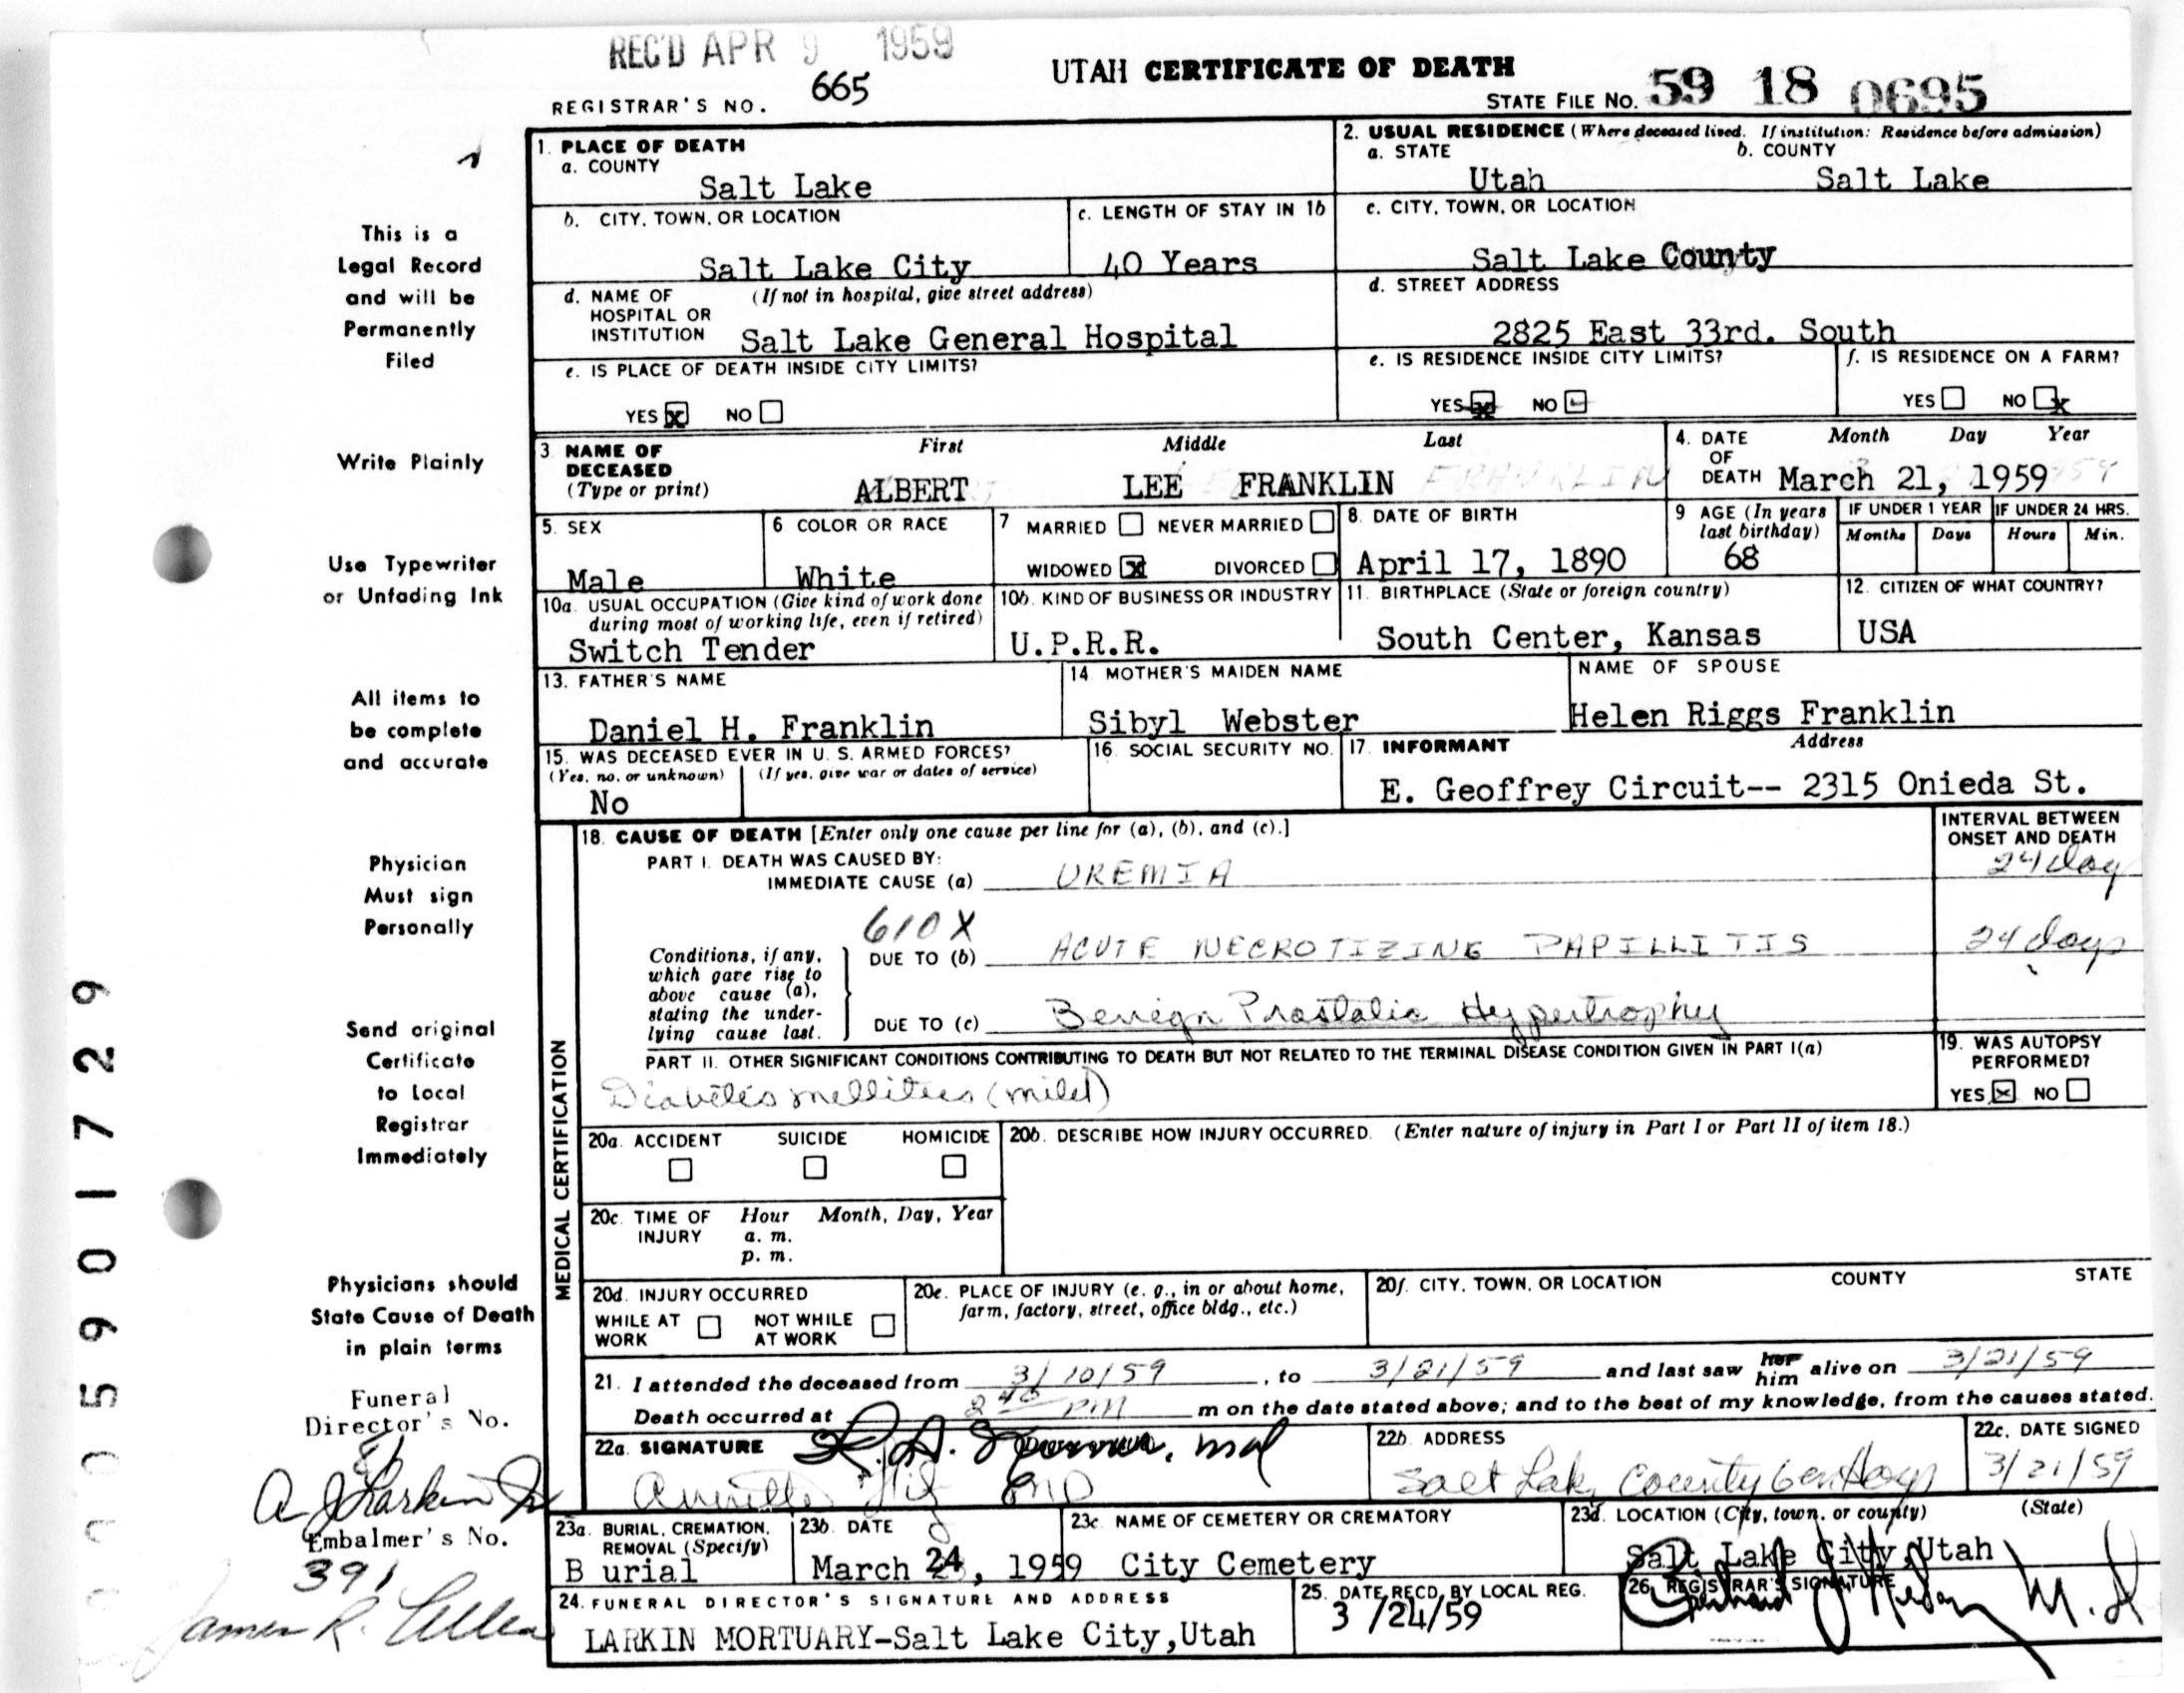 REC'D APR 9 1959
UTAH CERTIFICATE OF DEATH
REGISTRAR'S NO. 665
STATE FILE NO. 59 18 0695
This is a
Legal Record
and will be
Permanently
Filed
Write Plainly
Use Typewriter
or Unfading Ink
All items to
be complete
and accurate
Physician
Must sign
Personally
Send original
Certificate
to Local
Registrar
Immediately
Physicians should
State Cause of Death
in plain terms
Funeral
Director's No.
81
A J Larkin Jr
Embalmer's No.
391
James R.
005901729
1. PLACE OF DEATH
a. COUNTY
Salt Lake
2. USUAL RESIDENCE (Where deceased lived. If institution: Residence before admission)
a. STATE b. COUNTY
Utah Salt Lake
b. CITY, TOWN, OR LOCATION
Salt Lake City
c. LENGTH OF STAY IN 1b
40 Years
c. CITY, TOWN, OR LOCATION
Salt Lake County
d. NAME OF HOSPITAL OR INSTITUTION (If not in hospital, give street address)
Salt Lake General Hospital
d. STREET ADDRESS
2825 East 33rd. South
e. IS PLACE OF DEATH INSIDE CITY LIMITS?
YES X NO
e. IS RESIDENCE INSIDE CITY LIMITS?
YES NO
f. IS RESIDENCE ON A FARM?
YES NO x
3. NAME OF DECEASED (Type or print)
First Middle Last
ALBERT LEE FRANKLIN
4. DATE OF DEATH Month Day Year
March 21, 1959
5. SEX
Male
6 COLOR OR RACE
White
7 MARRIED NEVER MARRIED
WIDOWED X DIVORCED
8. DATE OF BIRTH
April 17, 1890
9 AGE (In years last birthday)
68
IF UNDER 1 YEAR IF UNDER 24 HRS.
Months Days Hours Min.
10a. USUAL OCCUPATION (Give kind of work done during most of working life, even if retired)
Switch Tender
10b. KIND OF BUSINESS OR INDUSTRY
U.P.R.R.
11. BIRTHPLACE (State or foreign country)
South Center, Kansas
12. CITIZEN OF WHAT COUNTRY?
USA
13. FATHER'S NAME
Daniel H. Franklin
14. MOTHER'S MAIDEN NAME
Sibyl Webster
NAME OF SPOUSE
Helen Riggs Franklin
15. WAS DECEASED EVER IN U. S. ARMED FORCES?
(Yes, no, or unknown) (If yes, give war or dates of service)
No
16. SOCIAL SECURITY NO.
17. INFORMANT Address
E. Geoffrey Circuit-- 2315 Onieda St.
MEDICAL CERTIFICATION
18. CAUSE OF DEATH [Enter only one cause per line for (a), (b), and (c).]
INTERVAL BETWEEN ONSET AND DEATH
PART I. DEATH WAS CAUSED BY:
IMMEDIATE CAUSE (a) UREMIA 24 day
610X
Conditions, if any, which gave rise to above cause (a), stating the underlying cause last.
DUE TO (b) ACUTE NECROTIZING PAPILLITIS 24 days
DUE TO (c) Benign Prostatic Hypertrophy
PART II. OTHER SIGNIFICANT CONDITIONS CONTRIBUTING TO DEATH BUT NOT RELATED TO THE TERMINAL DISEASE CONDITION GIVEN IN PART I(a)
Diabetes mellitus (mild)
19. WAS AUTOPSY PERFORMED?
YES X NO
20a. ACCIDENT SUICIDE HOMICIDE
20b. DESCRIBE HOW INJURY OCCURRED. (Enter nature of injury in Part I or Part II of item 18.)
20c. TIME OF INJURY Hour Month, Day, Year
a. m.
p. m.
20d. INJURY OCCURRED
WHILE AT WORK NOT WHILE AT WORK
20e. PLACE OF INJURY (e. g., in or about home, farm, factory, street, office bldg., etc.)
20f. CITY, TOWN, OR LOCATION COUNTY STATE
21. I attended the deceased from 3/10/59, to 3/21/59 and last saw her him alive on 3/21/59
Death occurred at 2 40 PM m on the date stated above; and to the best of my knowledge, from the causes stated.
22a. SIGNATURE
22b. ADDRESS
Salt Lake County Gen Hosp
22c. DATE SIGNED
3/21/59
23a. BURIAL, CREMATION, REMOVAL (Specify)
B urial
23b. DATE
March 24, 1959
23c. NAME OF CEMETERY OR CREMATORY
City Cemetery
23d. LOCATION (City, town, or county) (State)
Salt Lake City, Utah
24. FUNERAL DIRECTOR'S SIGNATURE AND ADDRESS
LARKIN MORTUARY-Salt Lake City,Utah
25. DATE RECD. BY LOCAL REG.
3/24/59
26. REGISTRAR'S SIGNATURE